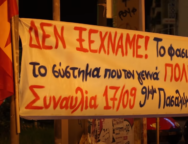 ΔΕΝ ΞΕΧΝΑΜΕ! Το φασι
το σύστημα που τον γεννά ΠΟΛ
Συναυλία 17/09 9μμ Πασαλιμ